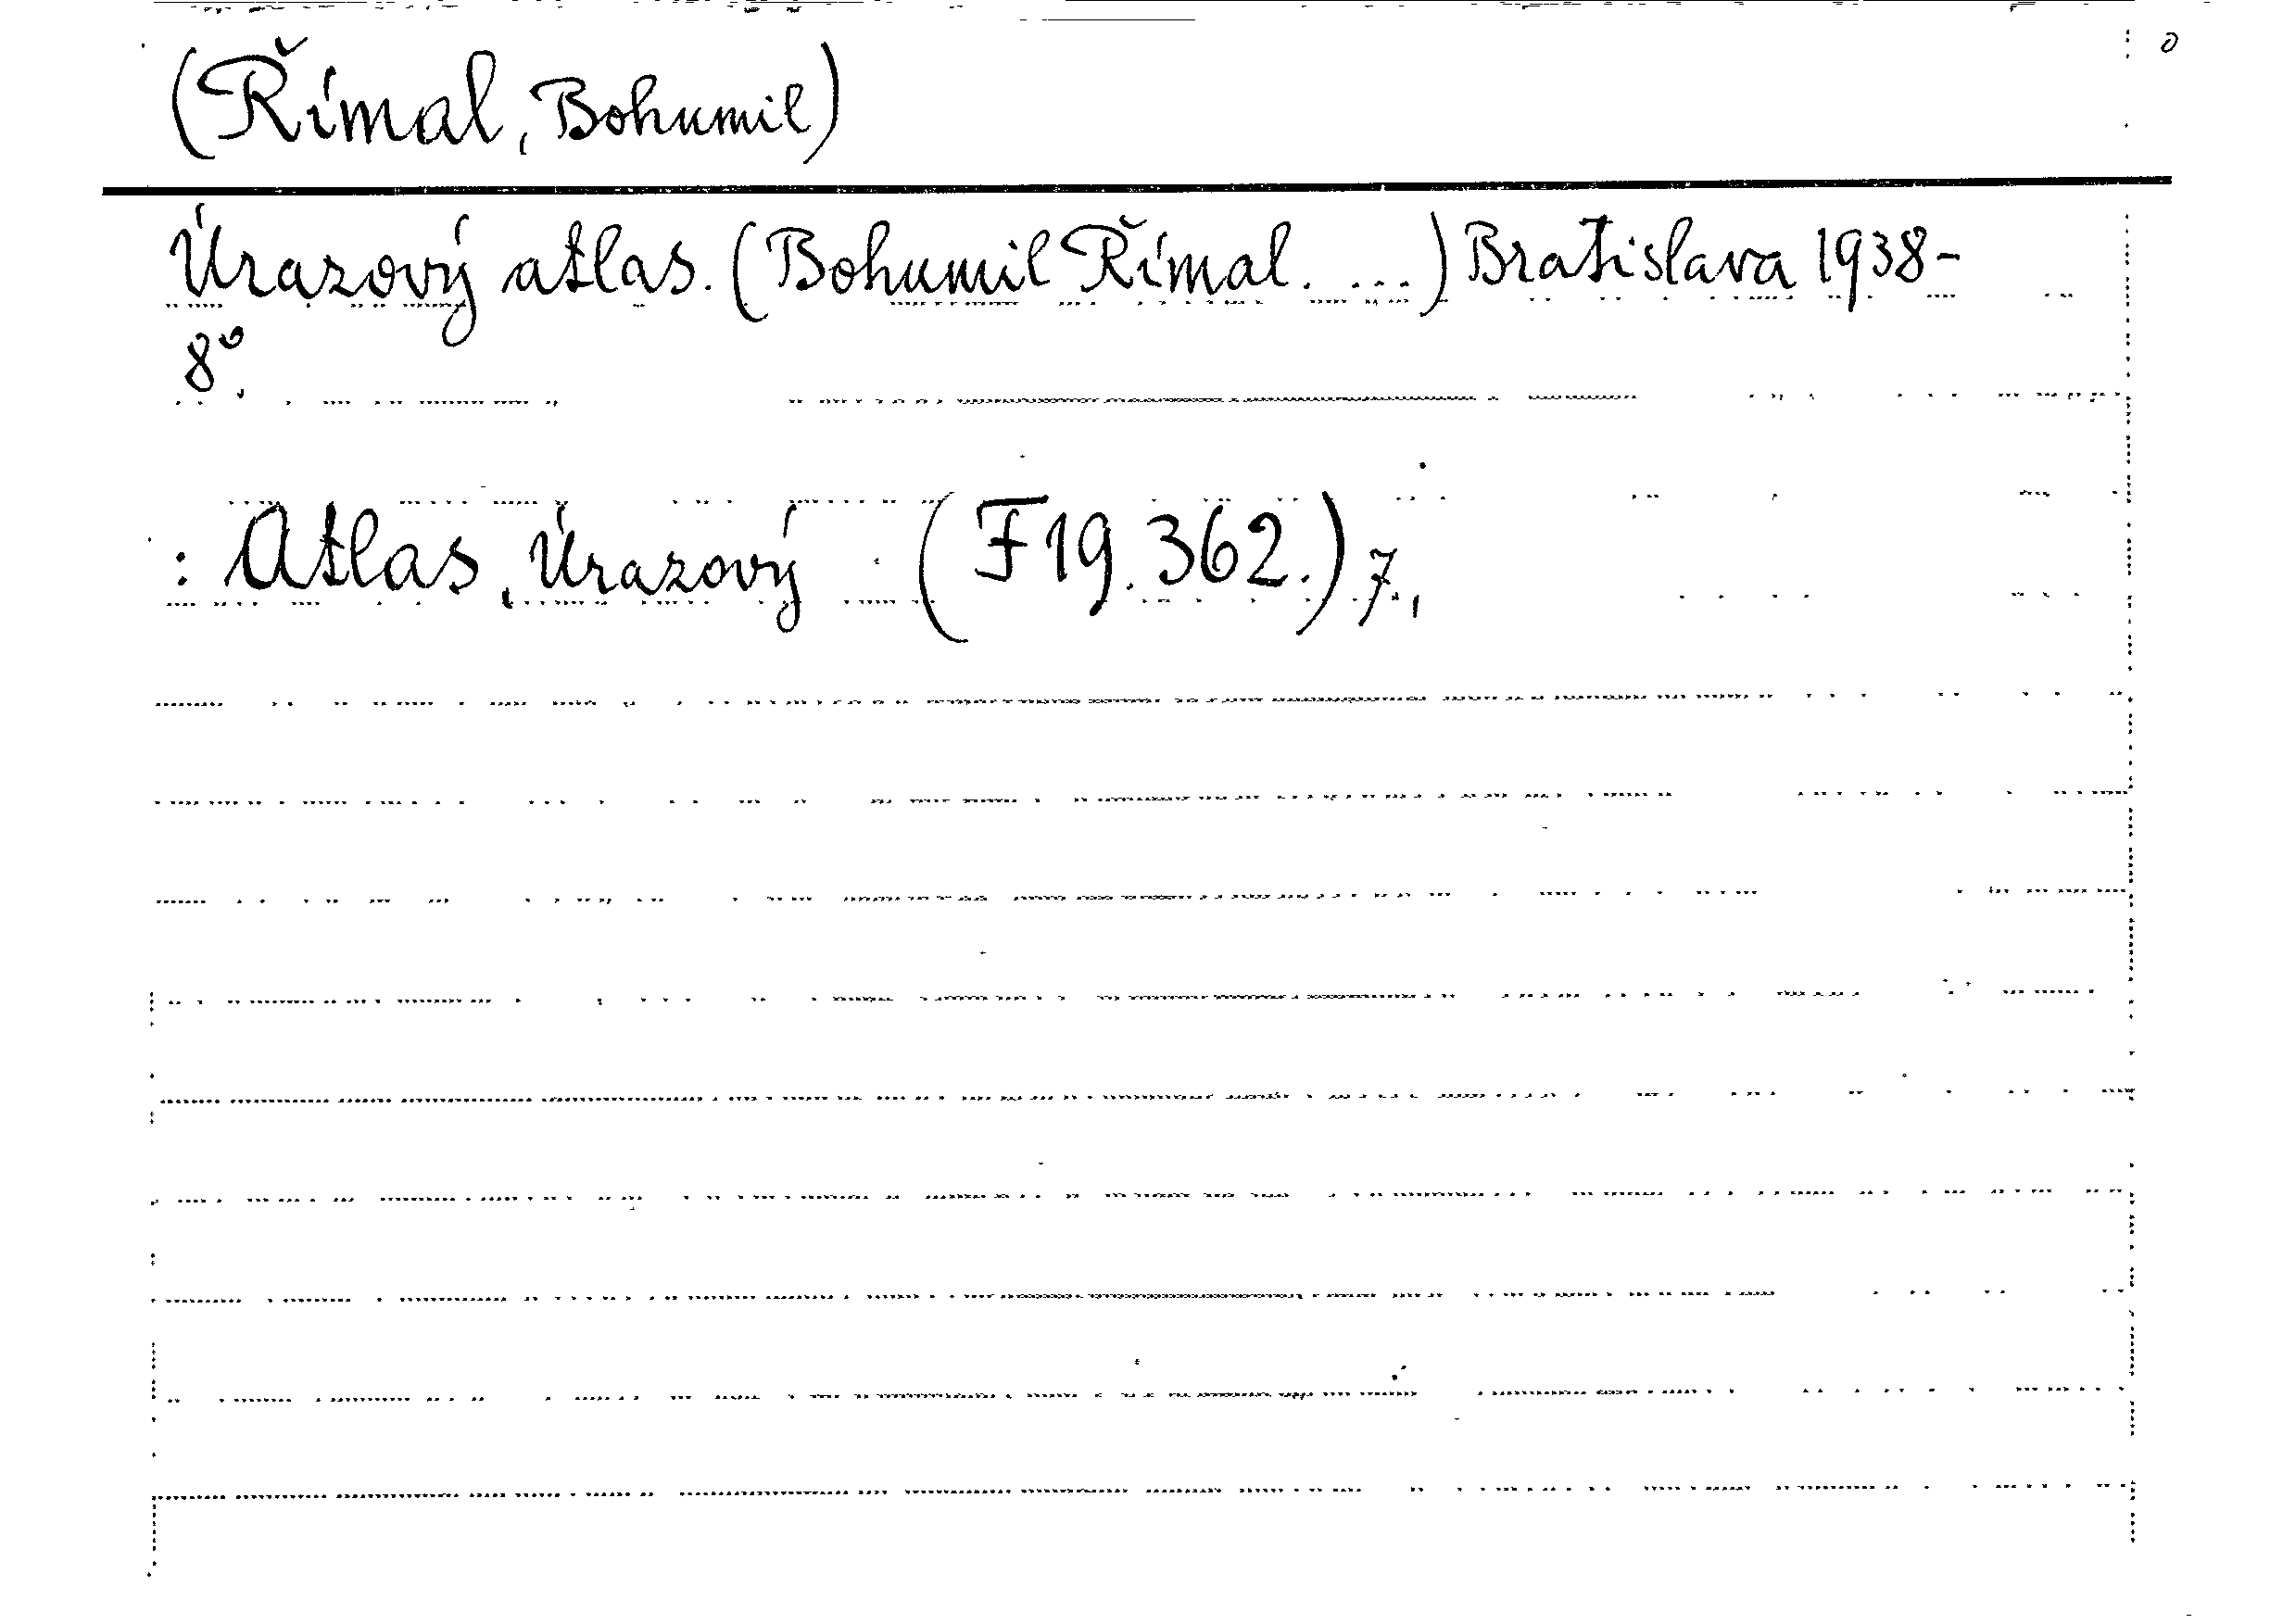 (Římal, Bohumil)
Úrazový atlas. (Bohumil Římal. ...) Bratislava 1938-
8°.
: Atlas, Úrazový (F 19.362.) 7.,